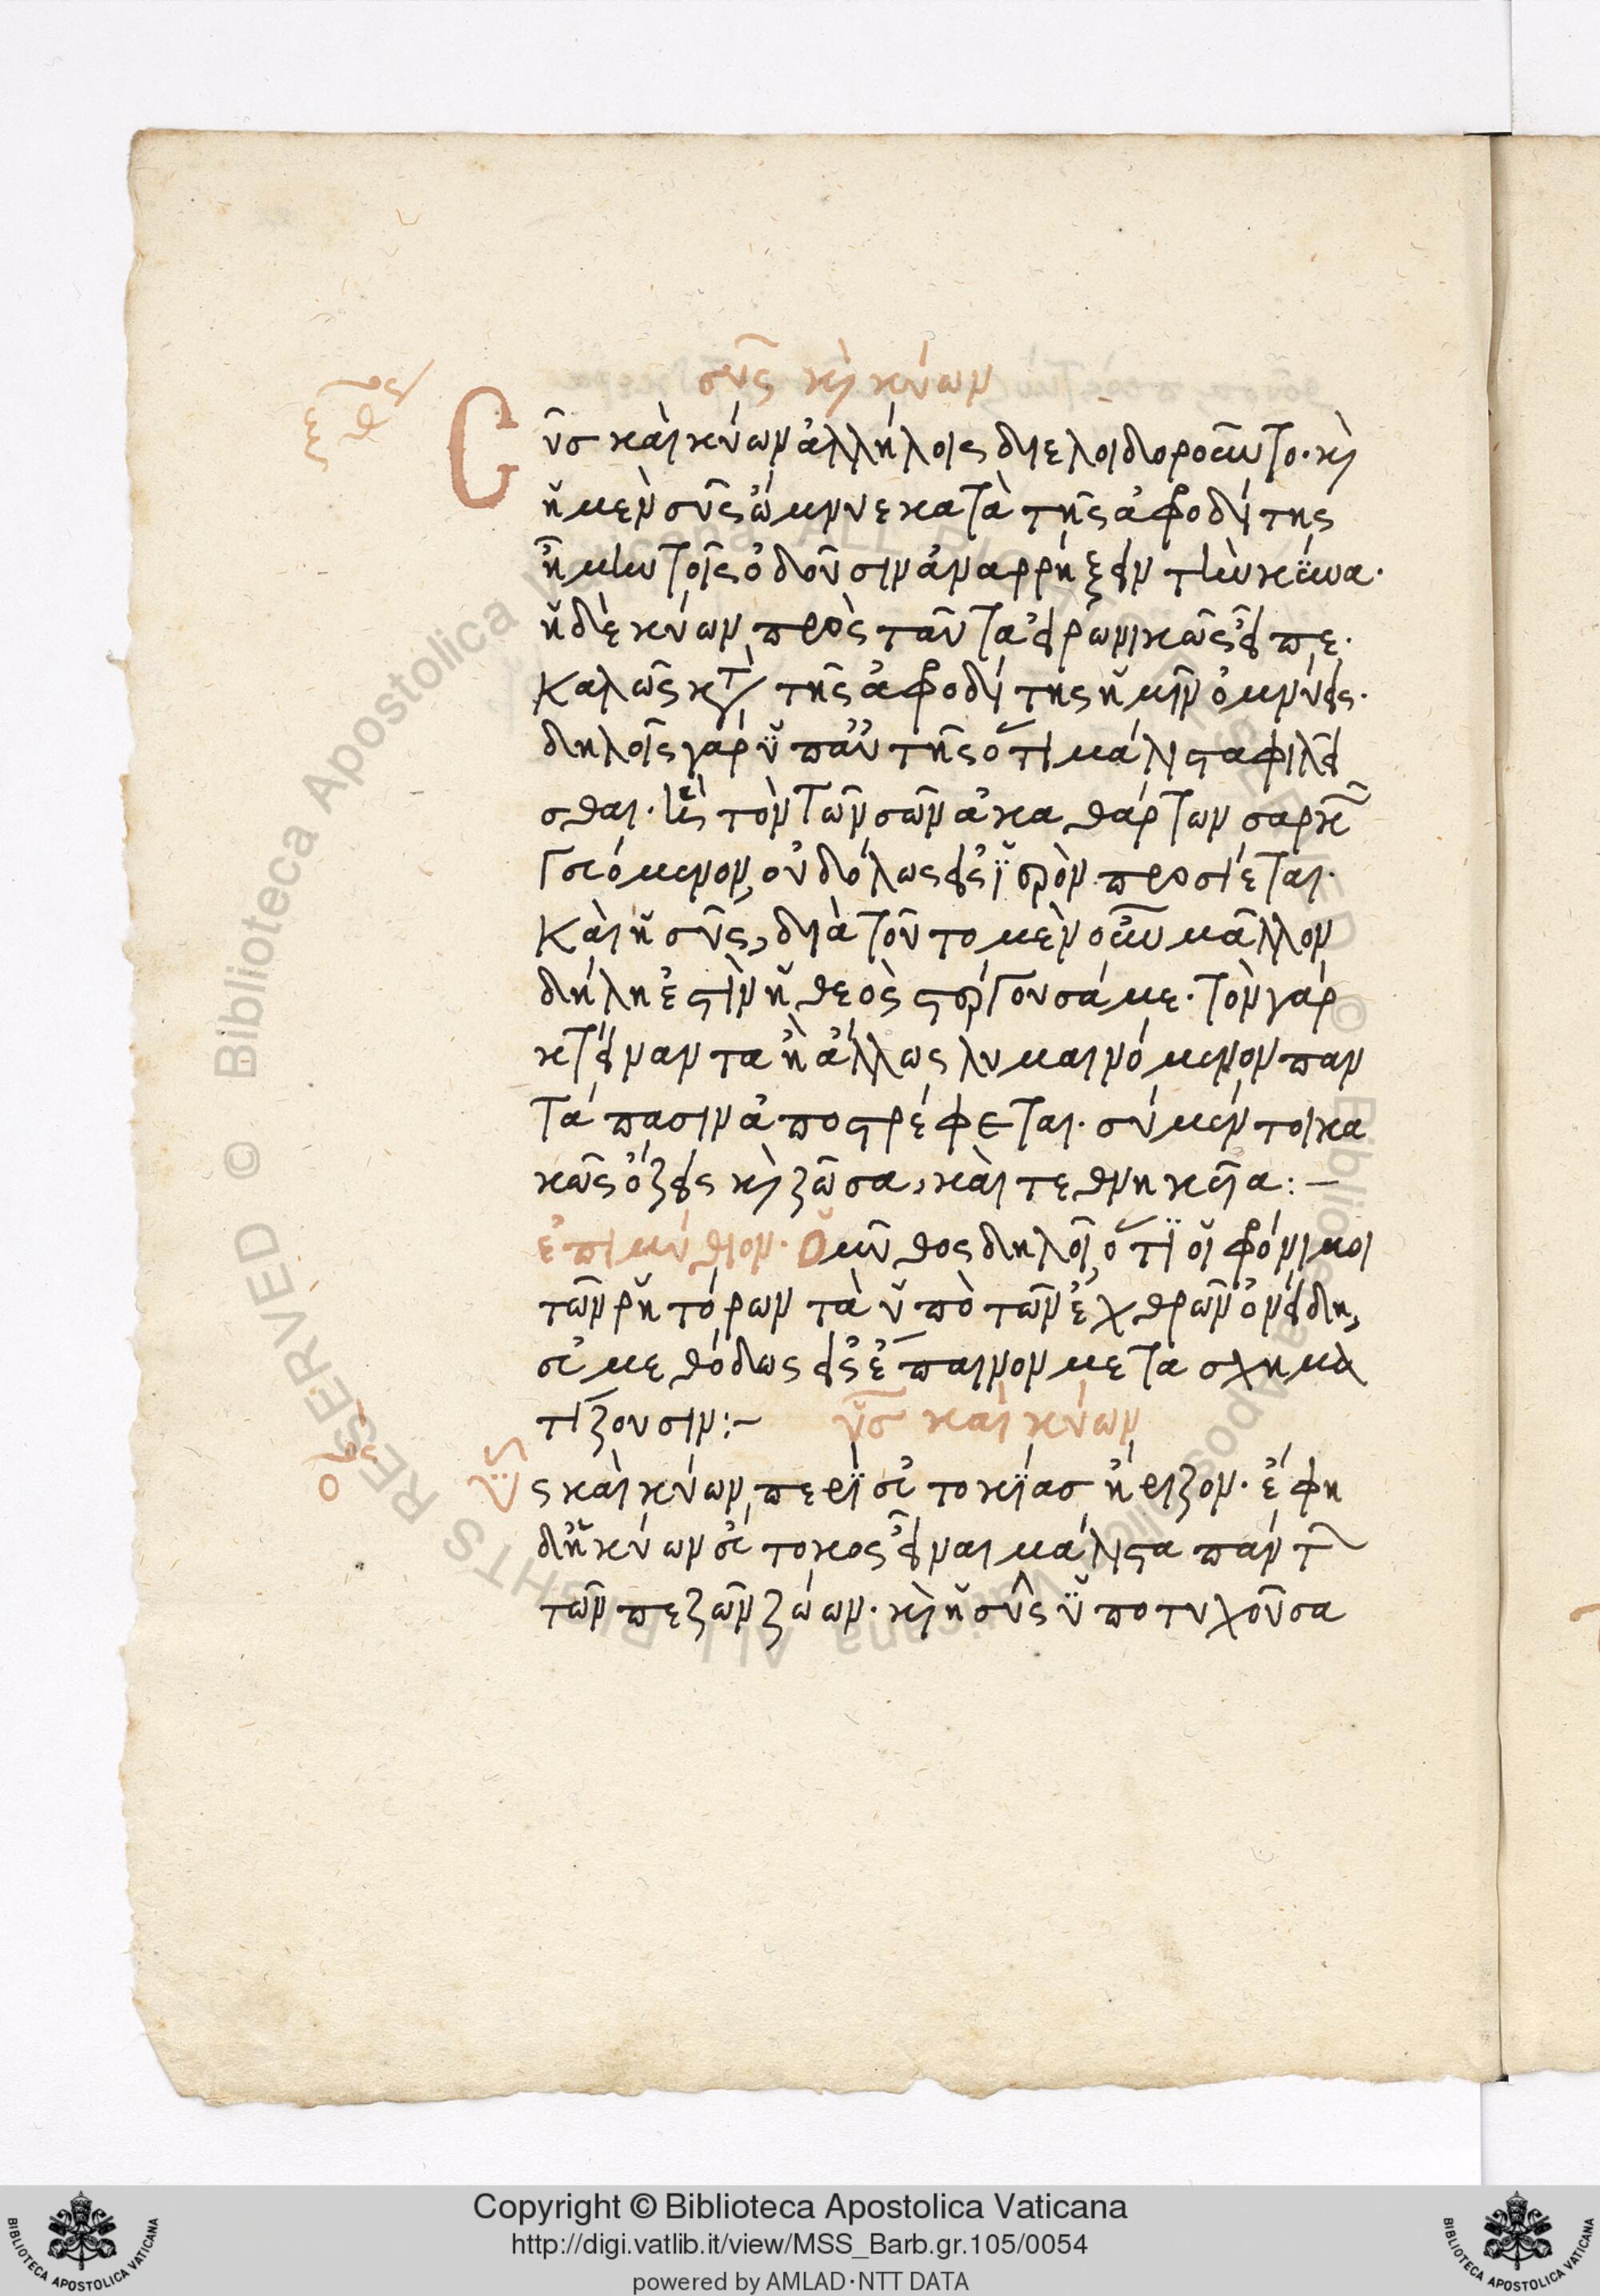 σῦς κὶ κύων
Cῦσ καὶ κύων ἀλλήλοις διελοιδοροῦντο· κὶ
ἡ μὲν σῦς ὤμνυε κατὰ τῆς ἀφροδίτης
ἦ μὴν τοῖς ὀδοῦσιν ἀναρρήξειν τὴν κύνα·
ἡ δὲ κύων πρὸς ταῦτα εἰρωνικῶς εἶπε·
καλῶς κτ τῆς ἀφροδίτης ἡμῖν ὀμνύεις·
δηλοῖς γὰρ ὑπ αὐτῆς ὅτι μάλιστα φιλεῖ
σθαι· ἣ τὸν τῶν σῶν ἀκαθάρτων σαρκῶν
γευόμενον, οὐδόλως εἰς ἱερὸν προσίεται·
καὶ ἡ σῦς, διὰ τοῦτο μὲν οὖν μᾶλλον
δήλη ἐστὶν ἡ θεὸς στέργουσά με· τὸν γὰρ
κτείναντα ἢ ἄλλως λυμαινόμενον παν
τάπασιν ἀποστρέφεται· σὺ μέντοι κα
κῶς ὄζεις κὶ ζῶσα, καὶ τεθνηκεῖα:—
ἐπιμύθιον· Ὁ μῦθος δηλοῖ, ὅτι οἱ φρόνιμοι
τῶν ῥητόρων τὰ ὑπὸ τῶν ἐχθρῶν ὀνείδη,
εὐμεθόδως εἰς ἔπαινον μετασχημα
τίζουσιν:— ὗσ καὶ κύων
ὗς καὶ κύων περὶ εὐτοκίασ ἤριζον· ἔφη
δ ἡ κύων εὔτοκος εἶναι μάλιστα πάντων
τῶν πεζῶν ζώων· κὶ ἡ σῦς ὑποτυχοῦσα
Copyright © Biblioteca Apostolica Vaticana
http://digi.vatlib.it/view/MSS_Barb.gr.105/0054
powered by AMLAD·NTT DATA